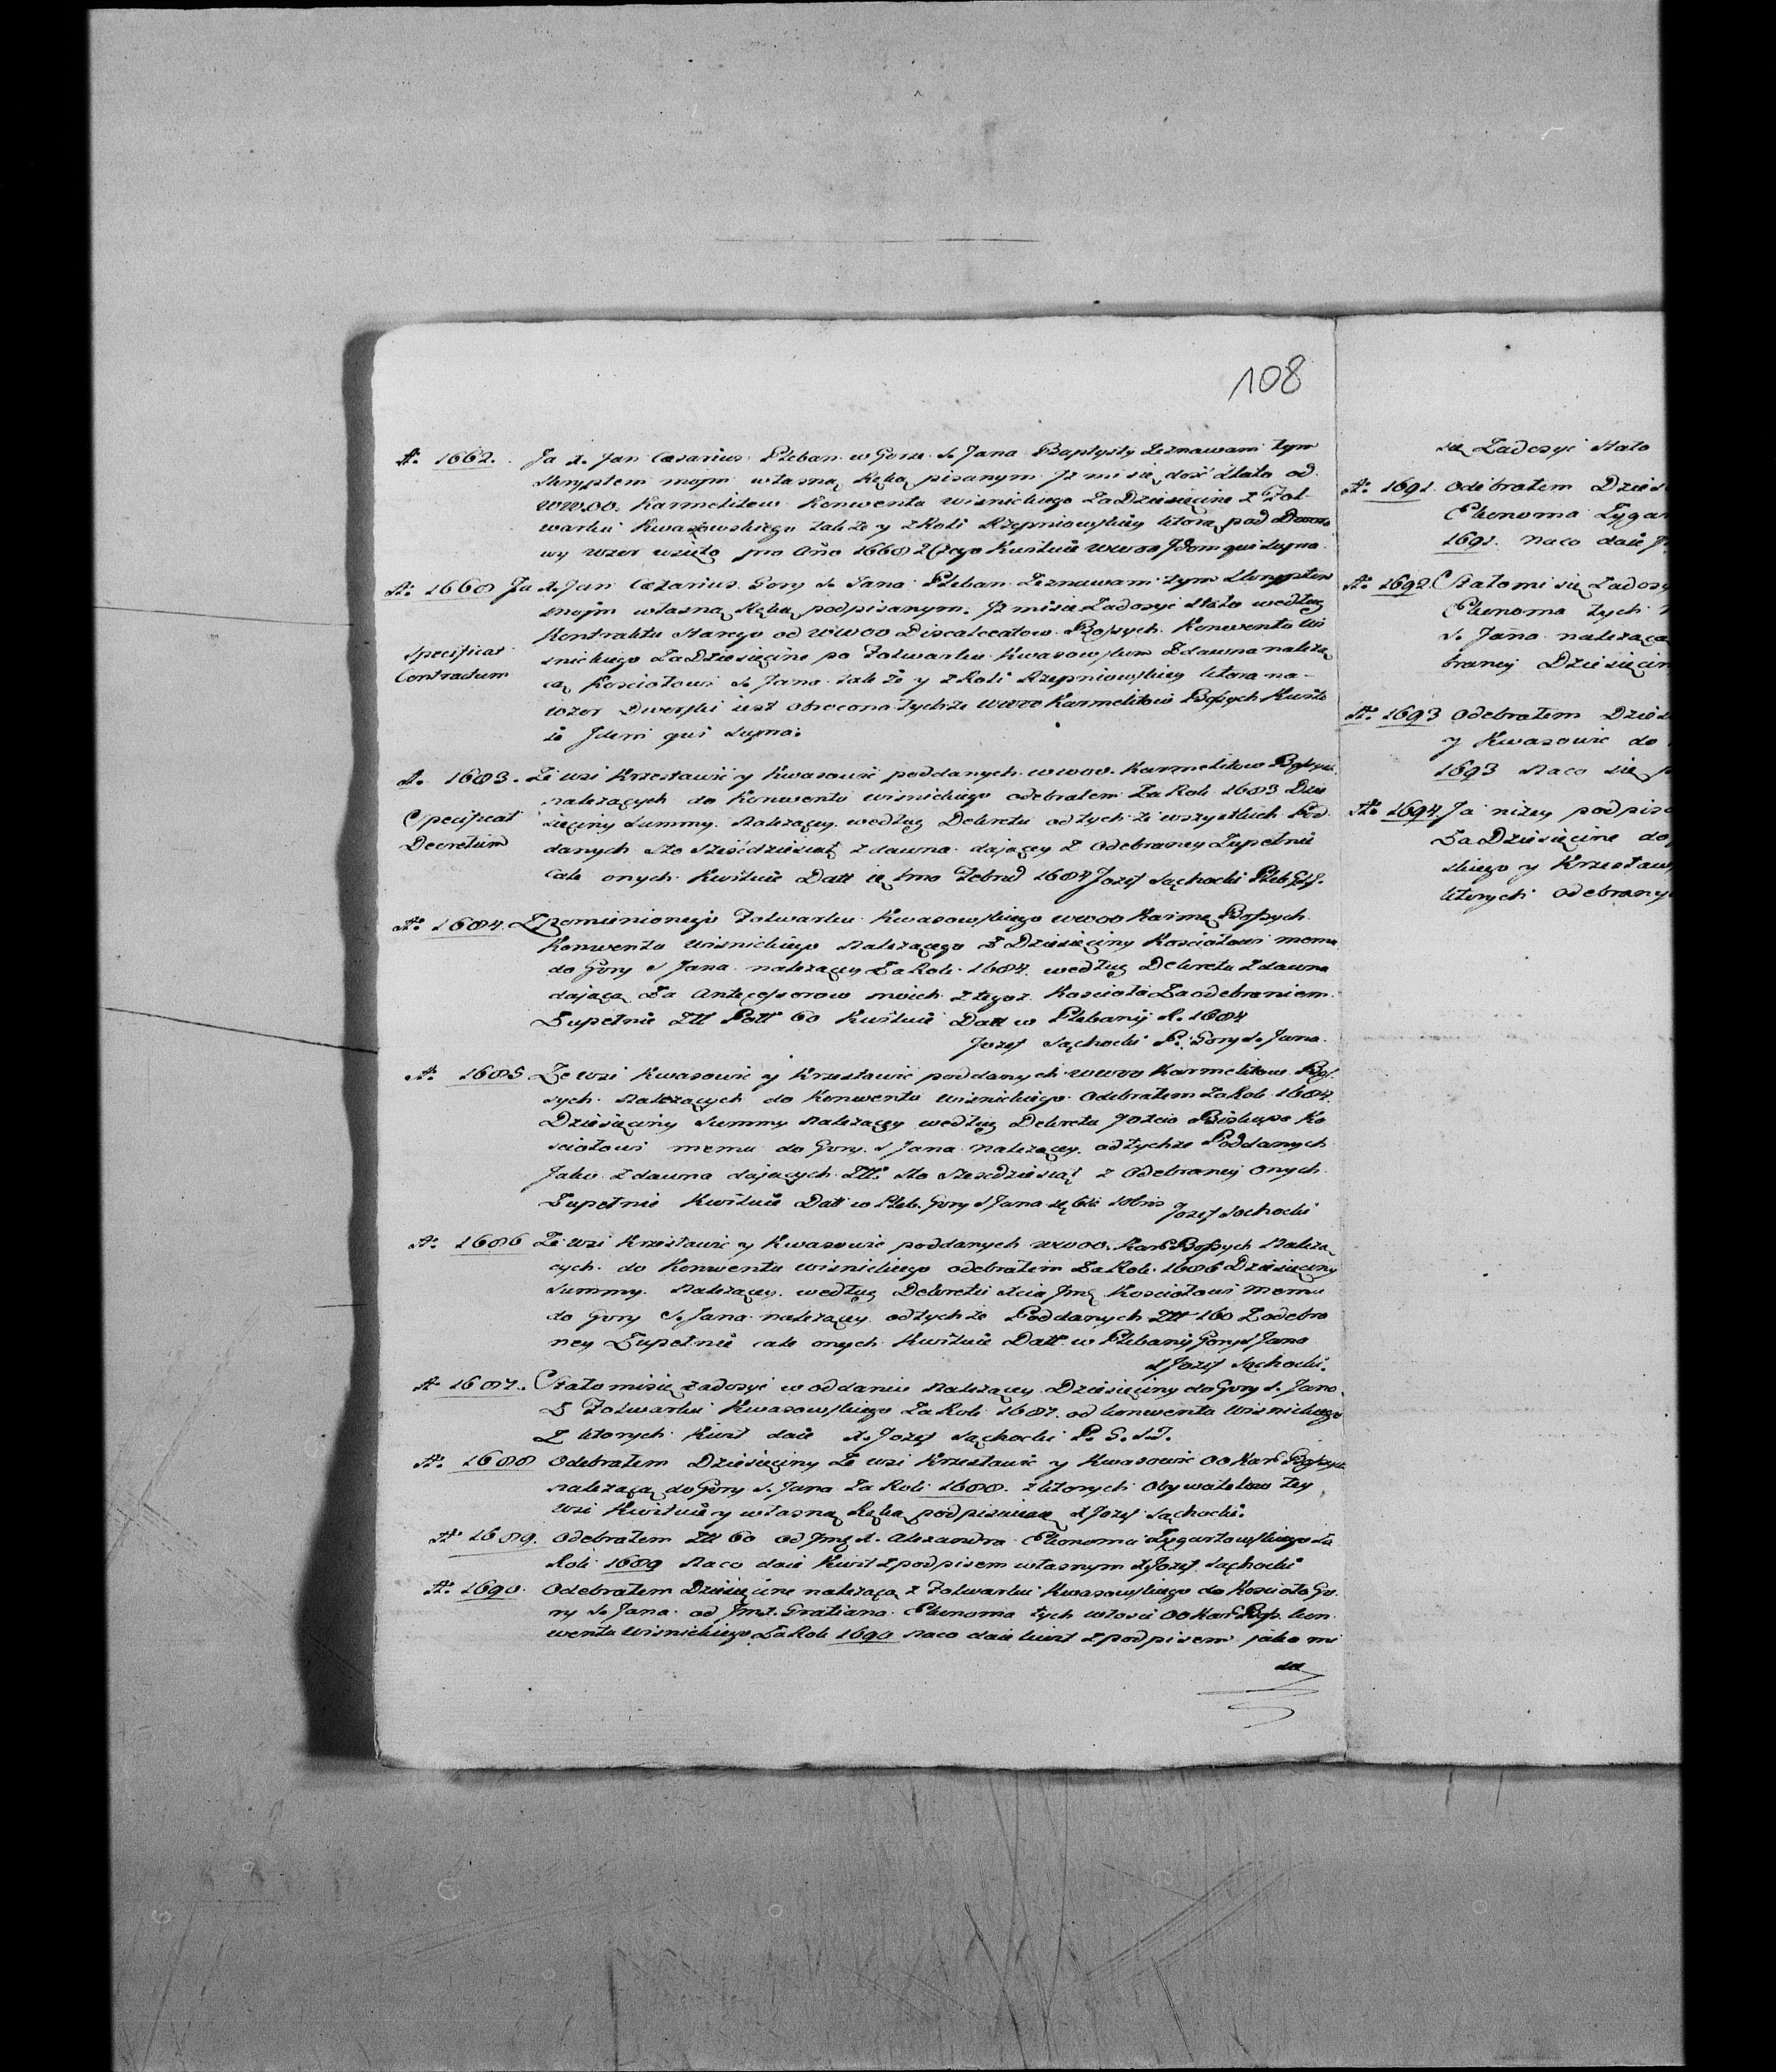 108
A. 1662. Ja X. Jan Cæsarius Pleban w Gorze S. Jana Baptysty Zeznawam tym
skryptem moim własną Ręką pisanym Iz mi się dość stało od
WW.OO. Karmelitow Konwentu wisnickiego Za Dziesięcine z Fol-
warku Kwasowskiego także y z Roli Rzepniowskiey ktora pod Dwors
wy wzor wzięto pro Año 1668 z Czego Kwituie WWOO Idem qui supra
A. 1668 Ja X. Jan Cæzarius Gory S. Jana Pleban Zeznawam tym Skryptem
moim własną Ręką podpisanym. Iz mi sie Zadosyć stało według
Kontraktu Starego od WWOO Discalceatow Bossych Konwentu Wi
snickiego Za Dziesięcine po Folwarku Kwasowskim Zdawna należą
Specificat
Contractum
cą Kosciołowi S. Jana także y z Roli Rzepniowskiey ktora na-
wzor Dworski iest obrocona tychże WWOO Karmelitow Bossych Kwitu
ie Idem qui supra.
A. 1683. Ze wsi Krzesławic y Kwasowic poddanych WWOO. Karmelitow Bossych
należących do Konwentu wisnickiego odebrałem Za Rok 1683 Dzie
sięciny Summy Należącey według Dekretu od tych że wszystkich Pod
Specificat
Decretum
danych Sto Sześćdziesiąt zdawna daiącey z Odebraney Zupełnie
Cale onych Kwituie Datt 1mo Febru 1684 Jozef Sąchocki Pleb GSJ.
A. 1684. Zpomienionego Folwarku Kwasowskiego WWOO Karme Bossych
Konwentu Wisnickiego Należącego Z Dziesięciny Kosciołowi memu
do Gory S Jana należącey Za Rok 1684. według Dekretu Zdawna
daiącą Za Antęcessorow moich z tegoz Kosciola Za odebraniem
Zupełnie Zlł Poll 60 Kwituie Datt w Plebanij A. 1684
Jozef Sąchocki P. Gory S. Jana.
A. 1685 Ze wsi Kwasowic y Krzesławic poddanych WWOO Karmelitow Bos
sych Należących do Konwentu Wisnickiego Odebrałem Za Rok 1684.
Dziesięciny Summy Należącey według Dekretu Jozcia Biskupa Ko
sciołowi memu do Gory S Jana należącey od tychże Poddanych
Jako Zdawna daiących Zlł. Sto Szesdziesiąt z Odebraney onych
Zupełnie Kwituie Datt w Pleb. Gory S Jana Xbris Jozef Sachocki
A. 1686 Ze wsi Krzesławic y Kwasowic poddanych WWOO. Kar Bossych Należą
cych do Konwentu wisnickiego odebrałem Za Rok 1686 Dziesięciny
Summy Należącey według Dekretu Xcia Jmę Kosciołowi memu
do Gory S. Jana należącey od tych że Poddanych Zlł 160 Z odebra
ney Zupełnie cale onych Kwituie Datt w Plebanij Gory S Jana
X Jozef Sąchocki.
A 1687. Stało mi się zadosyć w oddaniu Należącey Dziesięciny do Gory S. Jana
Z Folwarku Kwasowskiego Za Rok 1687. od konwentu Wisnickiego
Z ktorych Kwit daie X. Jozef Sąchocki P. G. S. J.
A. 1688 Odebrałem Dziesięciny Ze wsi Krzesławic y Kwasowic OO Kar Bossych
Należącą do Gory S. Jana Za Rok 1688. z ktorych Obywatelow tey
wsi Kwituie y własną Ręką podpisuię X Jozef Sąchocki.
A 1689. Odebrałem Zlł 60 od Jmę X. Alexandra Ekonoma Zygartowskiego Za
Rok 1689 Na co daie Kwit z podpisem własnym X Jozef Sąchocki
A. 1690. Odebrałem Dziesięcine należącą z Folwarku Kwasowskiego do Kosciola Go
ry S. Jana od Jmx. Gratiana Ekonoma tych włosci OO Kar Boss. kon
wentu Wisnickiego Za Rok 1690 Na co daie kwit z podpisem jako mi
się
się Zadosyć stało
A. 1691. Odebrałem
Ekonoma
1691. Na co daie
A. 1692 Stało mi się
Ekonoma tych
S. Jana należącą
braney
A. 1693 Odebrałem
y Kwasowic do
1693 Na co się
A. 1694. Ja niżey
Za Dziesięcine
skiego y
ktorych